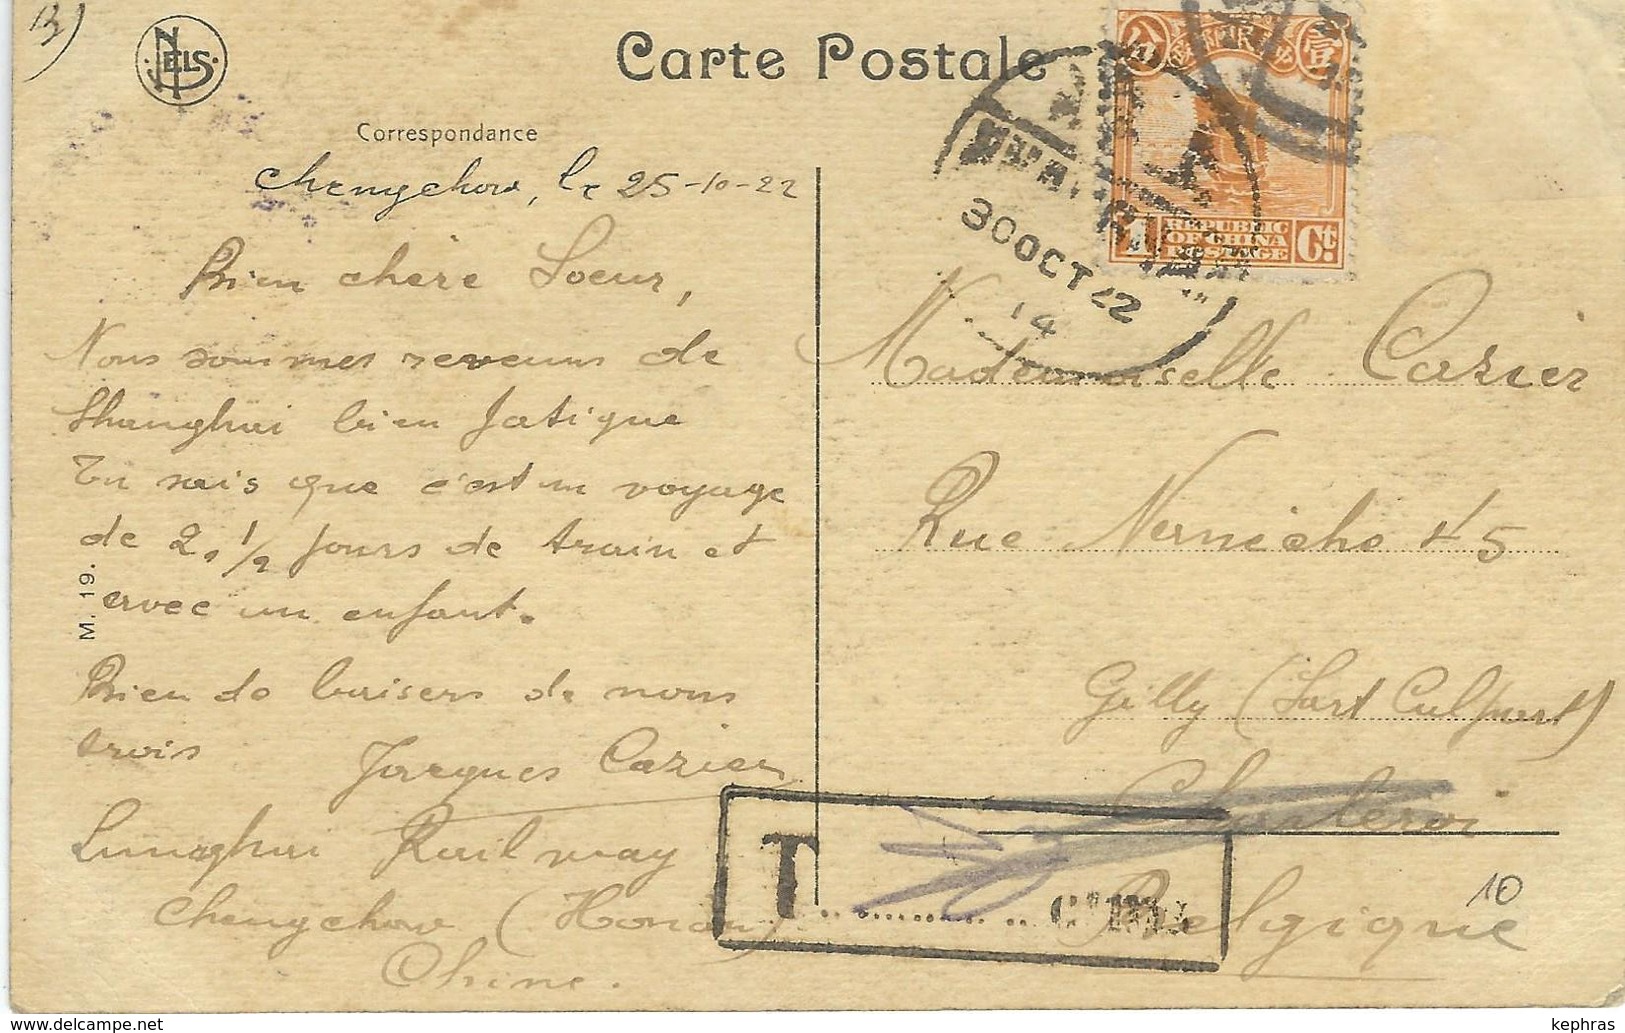 NELS
Carte Postale
Correspondance
Chengchow, le 25-10-22
Bien chère Soeur,
Nous sommes revenus de
Shanghai bien fatigue
Tu sais que c'est un voyage
de 2 1/2 jours de train et
avec un enfant.
Bien de baisers de nous
trois Jacques Cazier
Lunghai Railway
Chengchow (Honan)
Chine.
M. 19.
壹
REPUBLIC
OF CHINA
POSTAGE
1 Ct
30 OCT 22
14
Mademoiselle Cazier
Rue 45
Gilly (Sart Culpart)
Charleroi
Belgique
T
10
kephras
www.delcampe.net